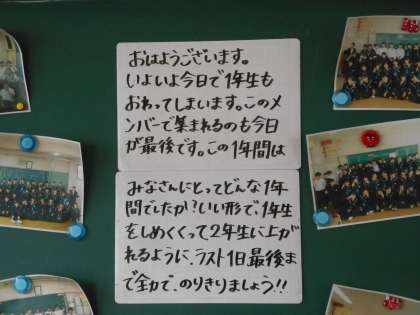 おはようございます。
いよいよ今日で1年生も
おわってしまいます。このメ
ンバーで集まれるのも今日
が最後です。この1年間は
みなさんにとってどんな1年
間でしたか？いい形で、1年生
をしめくくって2年生に上が
れるように、ラスト1日最後ま
で全力で、のりきりましょう!!